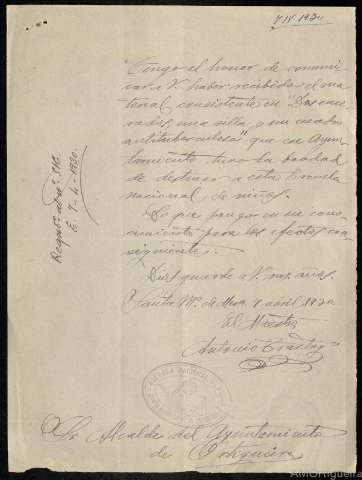 7 IV 1930
Tengo el honor de comuni-
car a V. haber recibido el ma-
terial, consistente en "Dos ence-
rados, una silla y un cuadro
antituberculoso" que ese Ayun-
tamiento tuvo la bondad
de destinar a esta Escuela
Nacional de niños.
Lo que pongo en su cono-
cimiento para los efectos con-
siguientes.
Dios guarde a V. ms. años.
Santa Mª de Mera 7 abril 1930
El Maestro
Antonio
Regdº. al nº. 516.
E. 7-4-1930.
ESCUELA NACIONAL DE
Sr. Alcalde del Ayuntamiento
de Ortigueira
AMOrtigueira